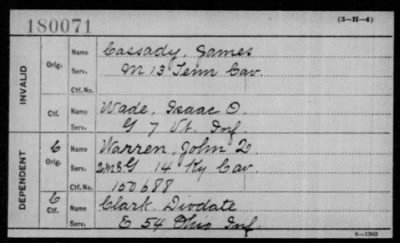 180071
(3-H-4)
INVALID
Orig.
Name Cassady, James
Serv. M 13 Tenn Cav.
Ctf. No.
Ctf.
Name Wade, Isaac O.
Serv. G 7 Vt. Inf.
DEPENDENT
C Orig.
Name Warren, John
Serv. G 14 Ky Cav.
Ctf. No. 150688
C Ctf.
Name Clark, Diodate
Serv. E 54 Ohio Inf.